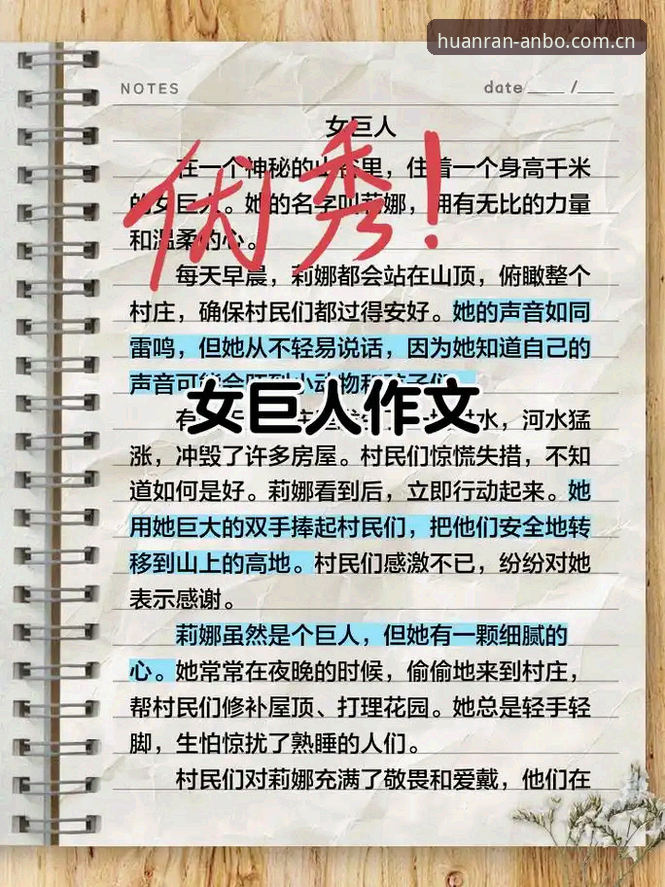 huanran-anbo.com.cn
NOTES
date ／
女巨人
在一个神秘的山谷里，住着一个身高千米
的女巨人。她的名字叫莉娜，拥有无比的力量
和温柔的心。
优秀！
每天早晨，莉娜都会站在山顶，俯瞰整个
村庄，确保村民们都过得安好。她的声音如同
雷鸣，但她从不轻易说话，因为她知道自己的
声音可能会吓到小动物和孩子们。
女巨人作文
有 水，河水猛
涨，冲毁了许多房屋。村民们惊慌失措，不知
道如何是好。莉娜看到后，立即行动起来。她
用她巨大的双手捧起村民们，把他们安全地转
移到山上的高地。村民们感激不已，纷纷对她
表示感谢。
莉娜虽然是个巨人，但她有一颗细腻的
心。她常常在夜晚的时候，偷偷地来到村庄，
帮村民们修补屋顶、打理花园。她总是轻手轻
脚，生怕惊扰了熟睡的人们。
村民们对莉娜充满了敬畏和爱戴，他们在